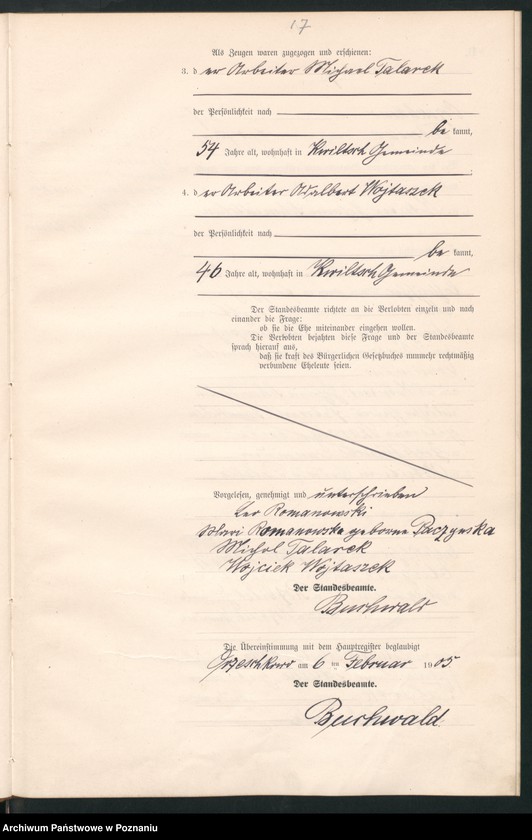 17
Als Zeugen waren zugezogen und erschienen:
3. d er Arbeiter Michael Talarek
der Persönlichkeit nach
be kannt,
54 Jahre alt, wohnhaft in Kwiltsch Gemeinde
4. d er Arbeiter Adalbert Wojtaszek
der Persönlichkeit nach
be kannt,
46 Jahre alt, wohnhaft in Kwiltsch Gemeinde
Der Standesbeamte richtete an die Verlobten einzeln und nach
einander die Frage:
ob sie die Ehe miteinander eingehen wollen.
Die Verlobten bejahten diese Frage und der Standesbeamte
sprach hierauf aus,
daß sie kraft des Bürgerlichen Gesetzbuches nunmehr rechtmäßig
verbundene Eheleute seien.
Vorgelesen, genehmigt und unterschrieben
Leo Romanowski
Mari Romanowska geborne Paczynska
Michal Talarek
Wojciek Wojtaszek
Der Standesbeamte.
Buchwald
Die Übereinstimmung mit dem Hauptregister beglaubigt
Orzeschkowo am 6 ten Februar 1905.
Der Standesbeamte.
Buchwald
Archiwum Państwowe w Poznaniu